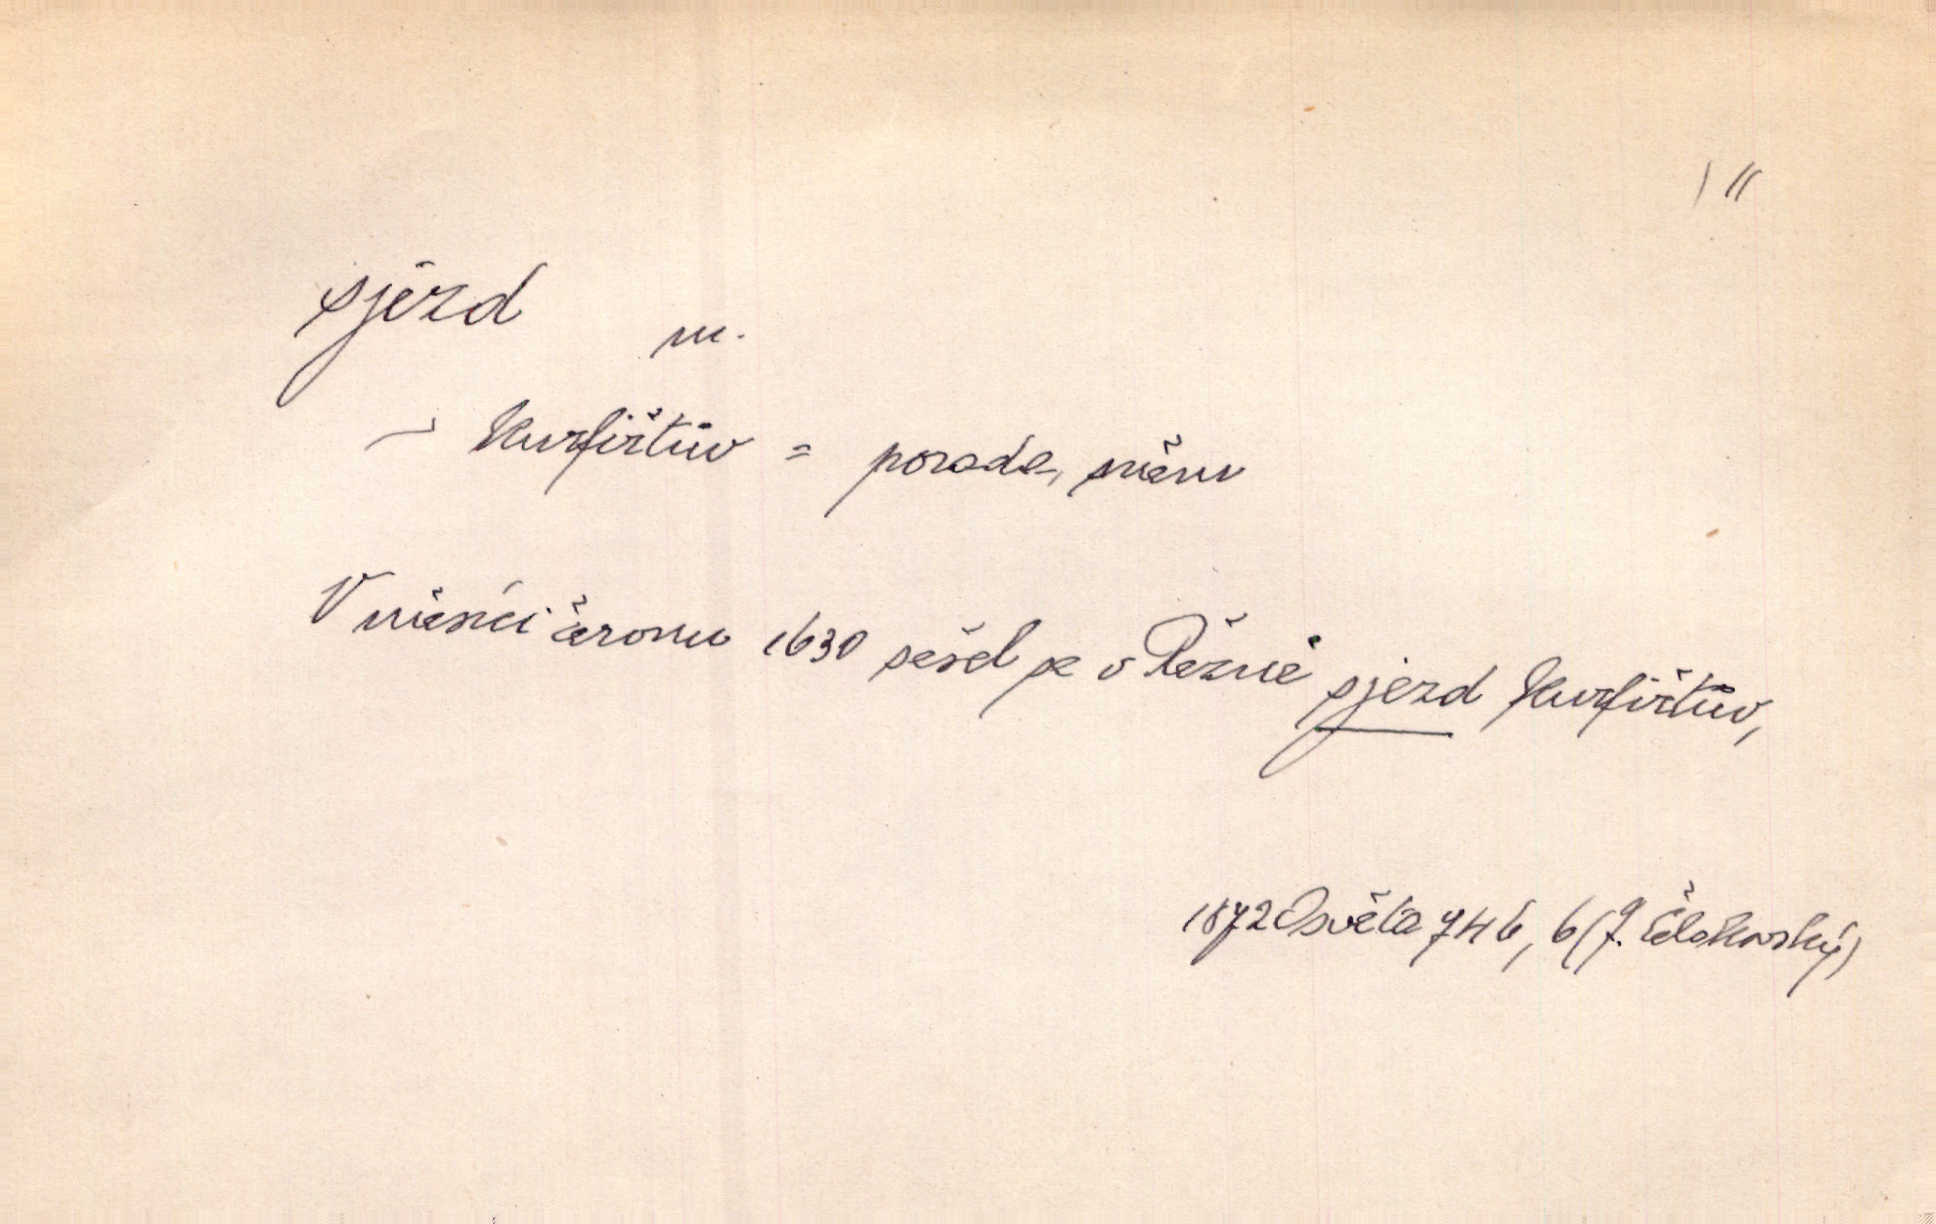 sjezd m.
~ kurfiřtův = porada, sněm
V měsíci červnu 1630 sešel se v Řezně sjezd kurfiřtův,
1872 Osvěta 746, 6 (J. Čelakovský)